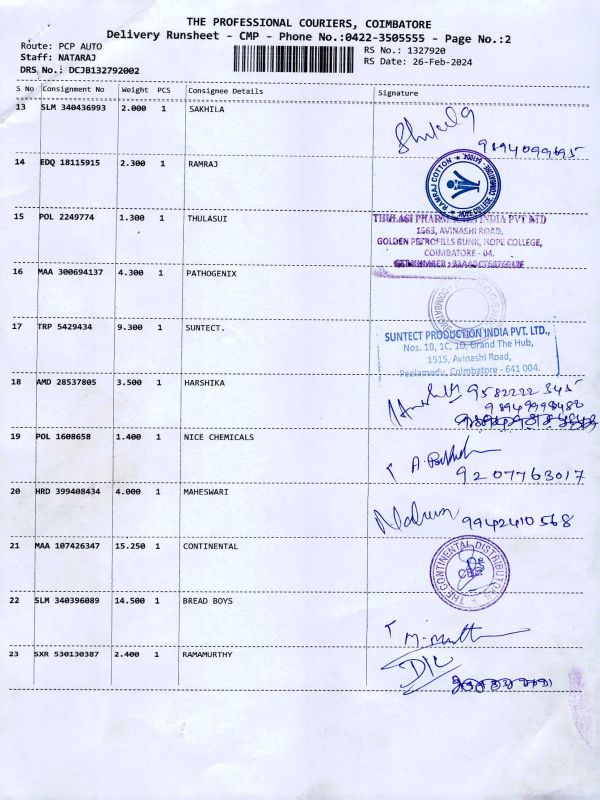 THE PROFESSIONAL COURIERS, COIMBATORE
Delivery Runsheet - CMP - Phone No.:0422-3505555 - Page No.:2
Route: PCP AUTO
Staff: NATARAJ
DRS No.: DCJB132792002
RS No.: 1327920
RS Date: 26-Feb-2024
S No Consignment No Weight PCS Consignee Details Signature
13 SLM 340436993 2.000 1 SAKHILA
9894099695
14 EDQ 18115915 2.300 1 RAMRAJ
RAMRAJ COTTON HOPE COLLEGE, COIMBATORE
15 POL 2249774 1.300 1 THULASUI
INDIA PVT LTD
1563, AVINASHI ROAD,
GOLDEN PETROFILLS BUNK, HOPE COLLEGE,
COIMBATORE - 04.
16 MAA 300694137 4.300 1 PATHOGENIX
17 TRP 5429434 9.300 1 SUNTECT.
SUNTECT PRODUCTION INDIA PVT. LTD.,
Nos. 1B, 1C, 1D, Grand The Hub,
1515, Avinashi Road,
Peelamedu, Coimbatore - 641 004.
18 AMD 28537805 3.500 1 HARSHIKA
19 POL 1608658 1.400 1 NICE CHEMICALS
9207763017
20 HRD 399408434 4.000 1 MAHESWARI
9942410568
21 MAA 107426347 15.250 1 CONTINENTAL
THE CONTINENTAL DISTRIBUTORS
CBE
22 SLM 340396089 14.500 1 BREAD BOYS
23 SXR 530130387 2.400 1 RAMAMURTHY
D/L